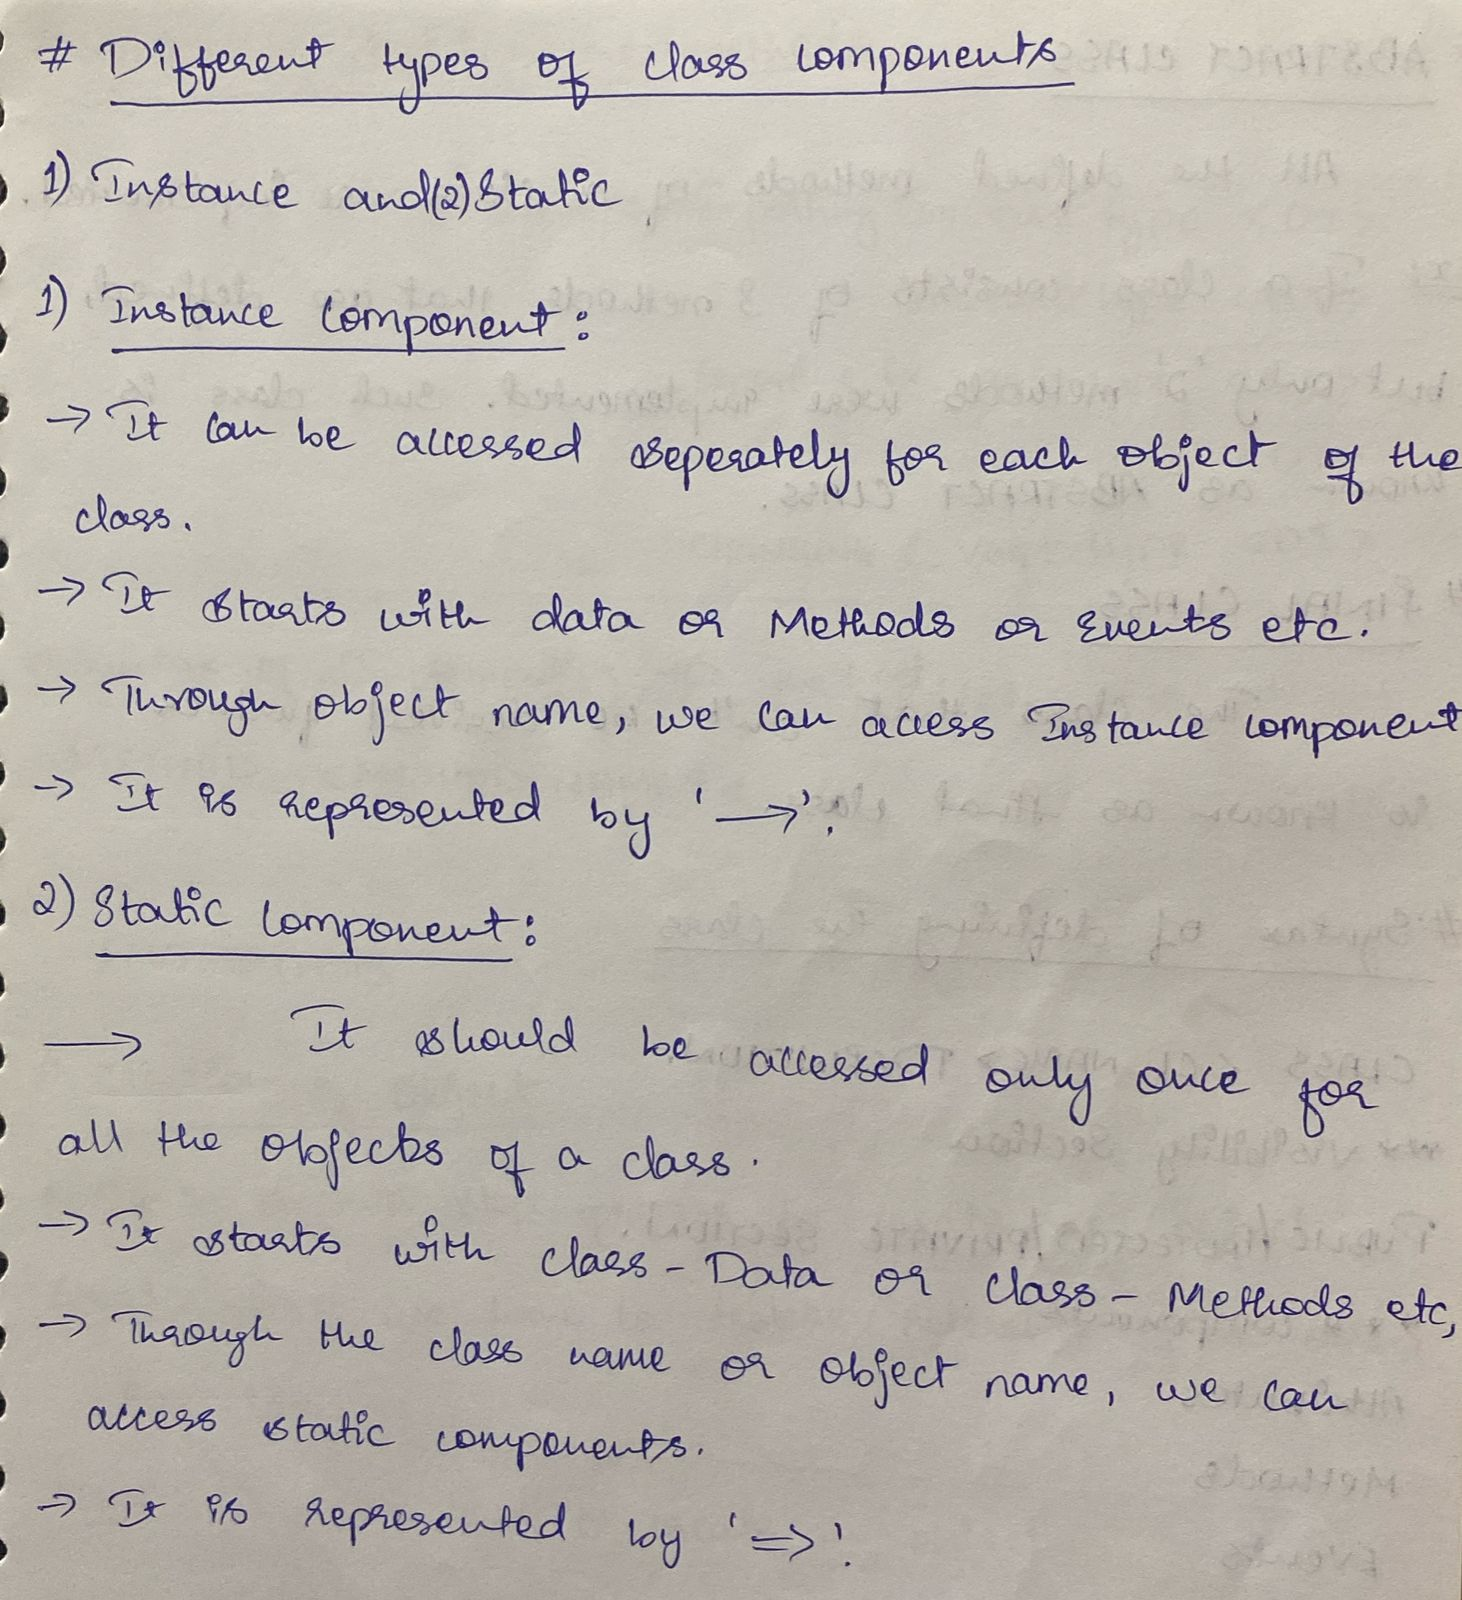 # Different types of class components
1) Instance and(2)Static
1) Instance component:
→ It can be accessed seperately for each object of the
class.
→ It starts with data or Methods or Events etc.
→ Through object name, we can access Instance component
→ It is represented by '→'.
2) Static component:
→ It should be accessed only once for
all the objects of a class.
→ It starts with class-Data or class-Methods etc,
→ Through the class name or object name, we can
access static components.
→ It is represented by '=>'.